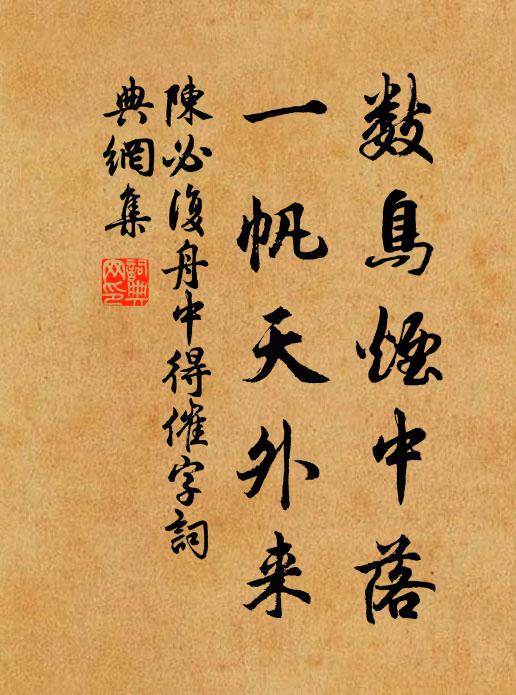 數鳥煙中落
一帆天外来
陳必復舟中得催字詞
典網集
詞典網印